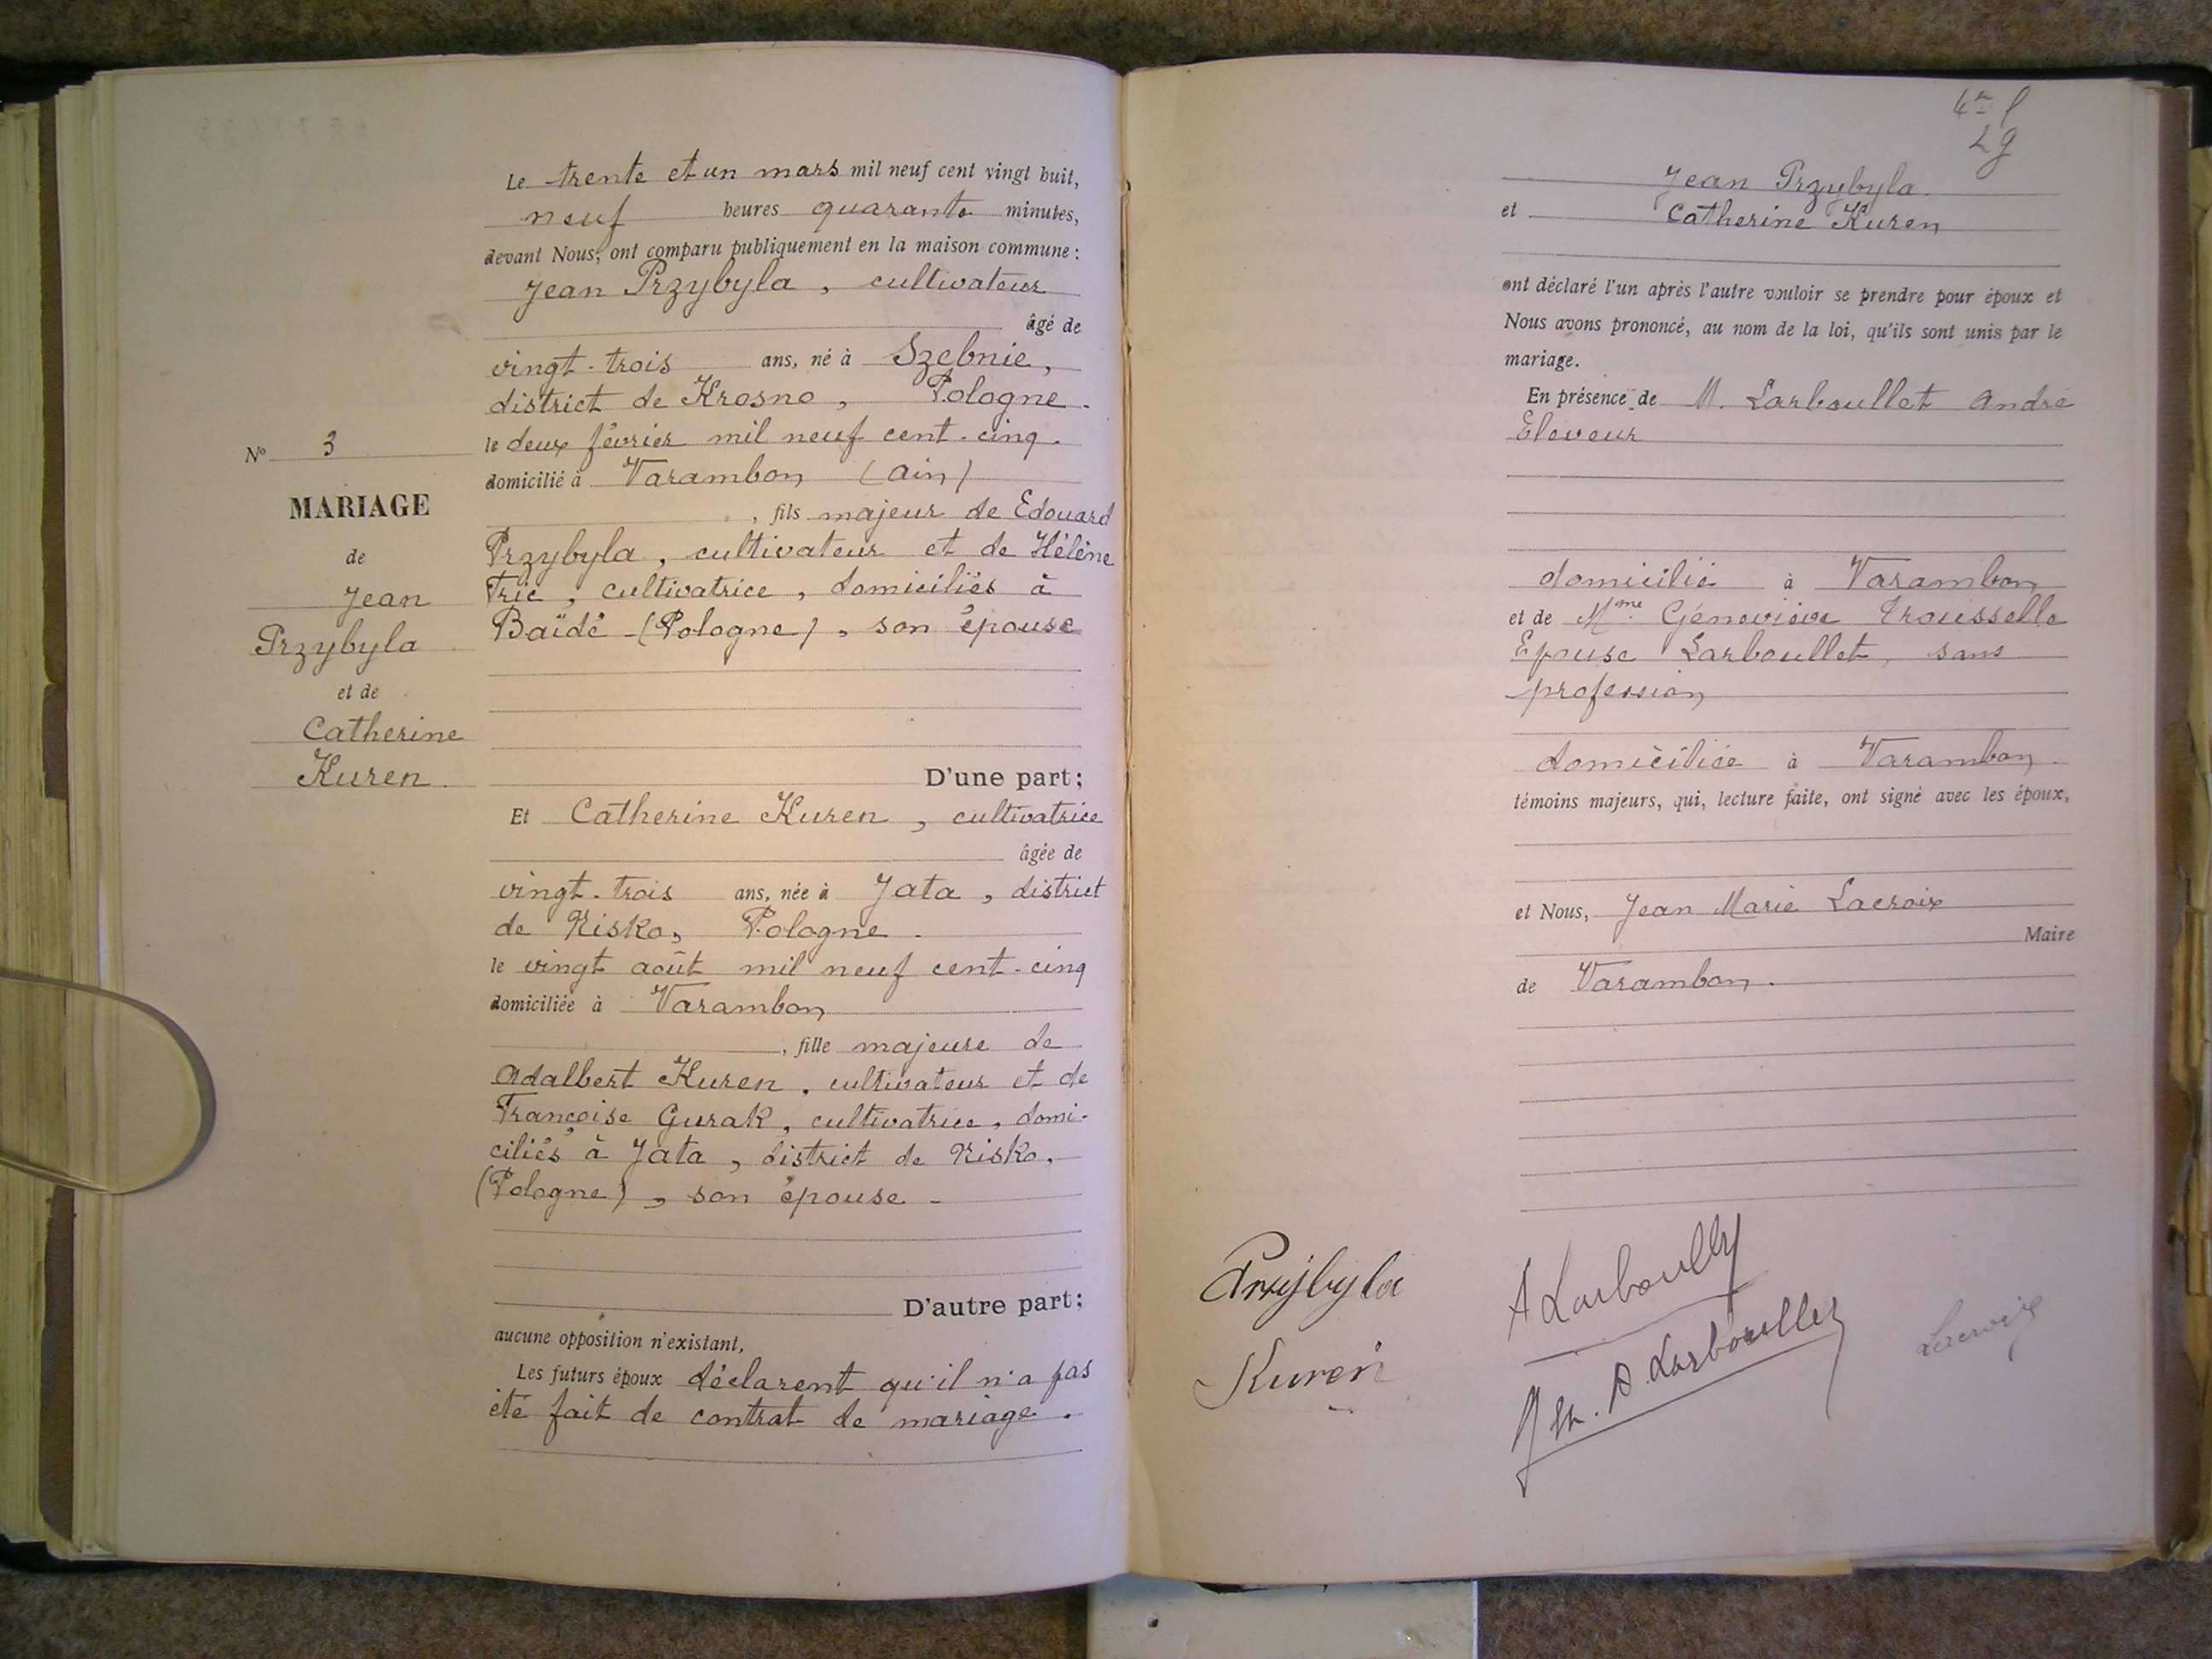 N° 3
MARIAGE
de
Jean
Przybyla
et de
Catherine
Kuren
Le trente et un mars mil neuf cent vingt huit,
neuf heures quarante minutes,
devant Nous, ont comparu publiquement en la maison commune :
Jean Przybyla, cultivateur
âgé de
vingt-trois ans, né à Szebnie,
district de Krosno, Pologne.
le deux février mil neuf cent-cinq.
domicilié à Varambon (Ain)
, fils majeur de Edouard
Przybyla, cultivateur et de Hélène
Fric, cultivatrice, domiciliés à
Baïdé (Pologne), son épouse
D'une part;
Et Catherine Kuren, cultivatrice
âgée de
vingt-trois ans, née à Jata, district
de Nisko, Pologne.
le vingt août mil neuf cent-cinq
domiciliée à Varambon
, fille majeure de
Adalbert Kuren, cultivateur et de
Françoise Gurak, cultivatrice, domi-
ciliés à Jata, district de Nisko,
(Pologne), son épouse -
D'autre part;
aucune opposition n'existant,
Les futurs époux déclarent qu'il n'a pas
été fait de contrat de mariage.
Jean Przybyla
et Catherine Kuren
ont déclaré l'un après l'autre vouloir se prendre pour époux et
Nous avons prononcé, au nom de la loi, qu'ils sont unis par le
mariage.
En présence de M. Larboullet André
Eleveur
domicilié à Varambon
et de Mme Geneviève Trousselle
Epouse Larboullet, sans
profession
domiciliée à Varambon.
témoins majeurs, qui, lecture faite, ont signé avec les époux,
et Nous, Jean Marie Lacroix
Maire
de Varambon.
Przyjbyla
Kureń
A Larboullet
A. Larboullet
Lacroix